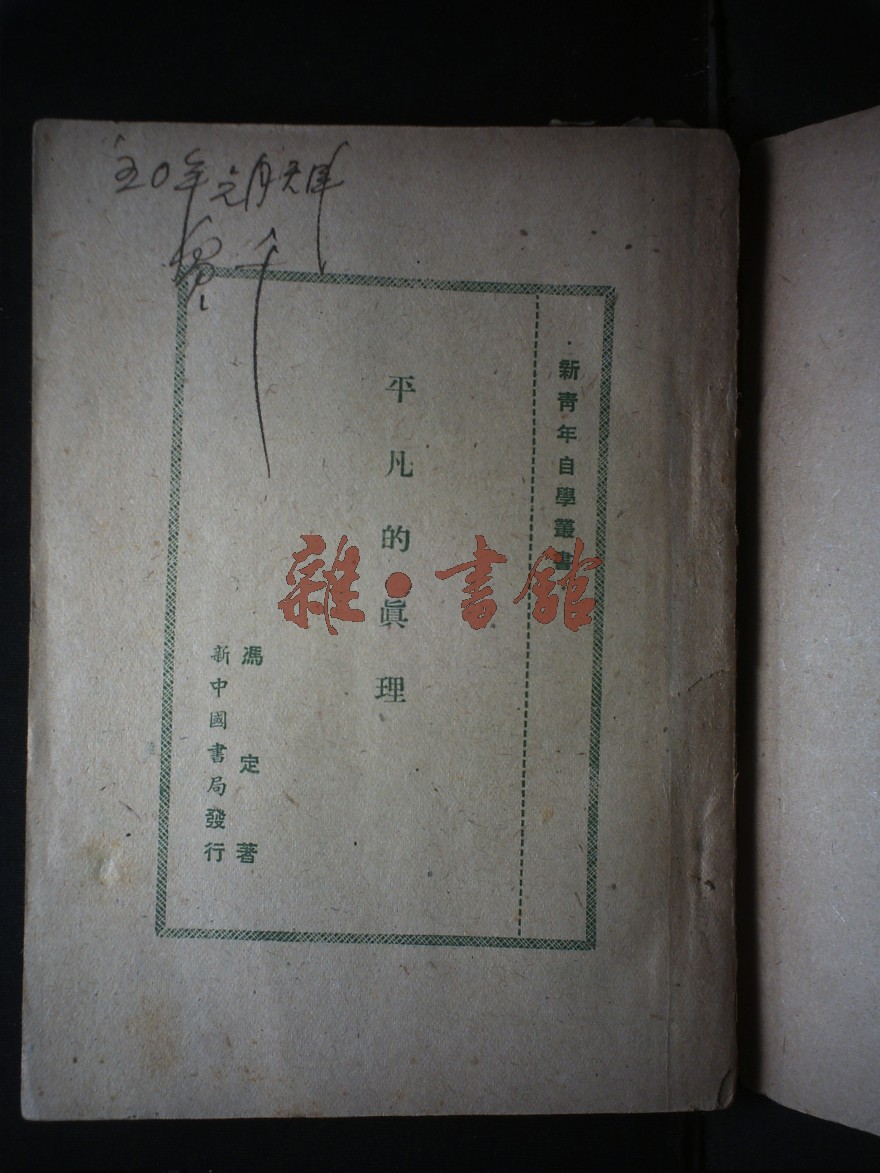 五〇年元月天津
新青年自學叢書
平凡的眞理
馮定著
新中國書局發行
雜·書館